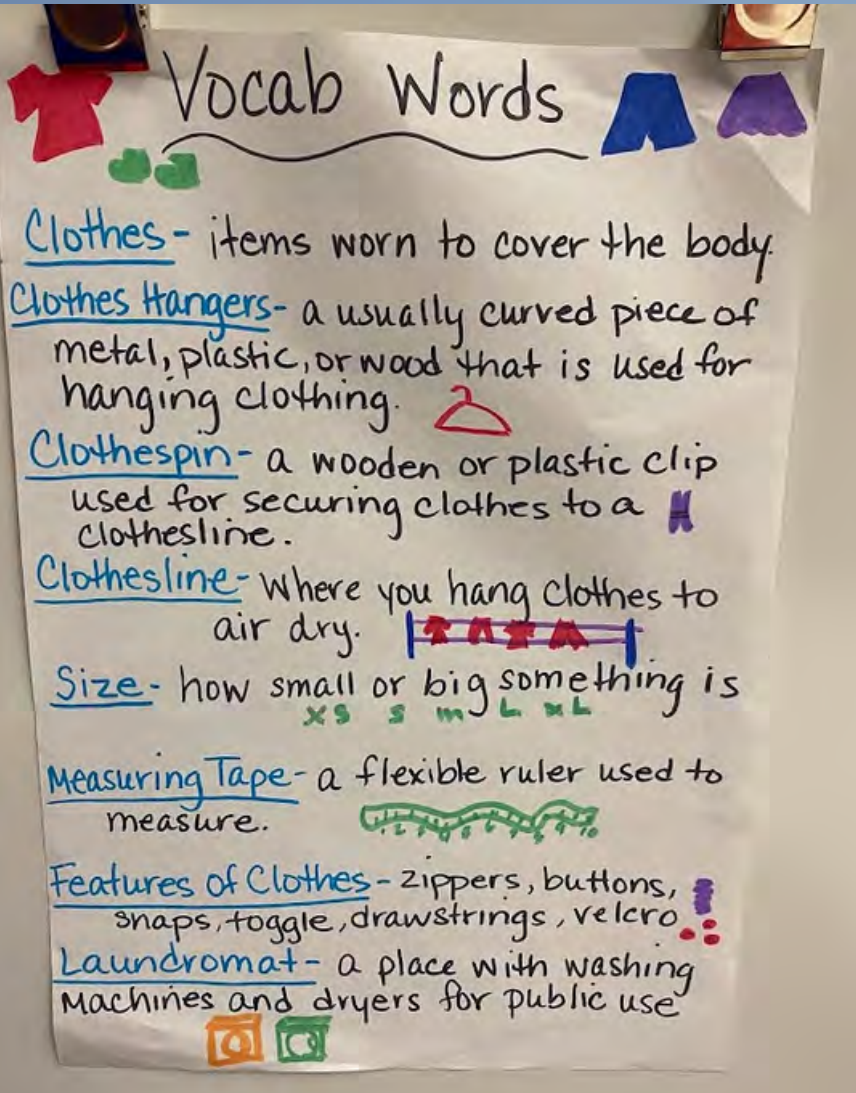 Vocab Words
Clothes- items worn to cover the body.
Clothes Hangers- a usually curved piece of
metal, plastic, or wood that is used for
hanging clothing.
Clothespin- a wooden or plastic clip
used for securing clothes to a
clothesline.
Clothesline- Where you hang clothes to
air dry.
Size- how small or big something is
XS S m L XL
Measuring Tape- a flexible ruler used to
measure.
Features of Clothes- zippers, buttons,
snaps, toggle, drawstrings, velcro
Laundromat- a place with washing
Machines and dryers for public use